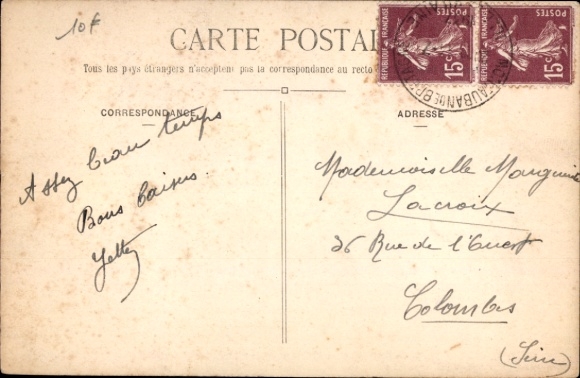 10F
CARTE POSTAL
Tous les pays étrangers n'acceptent pas la correspondance au recto
POSTES
RÉPUBLIQUE FRANÇAISE
15c
POSTES
RÉPUBLIQUE FRANÇAISE
15c
MONTAUBAN DE BRETA
CORRESPONDANCE
ADRESSE
Assez beau temps
Bons baisers.
Mademoiselle Marguerite
Lacroix
36 Rue de l'Ouest
Colombes
(Seine)